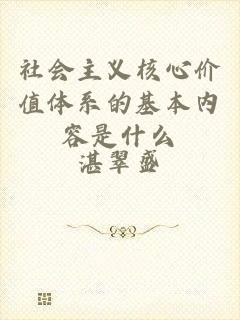 社会主义核心价
值体系的基本内
容是什么
湛翠盛